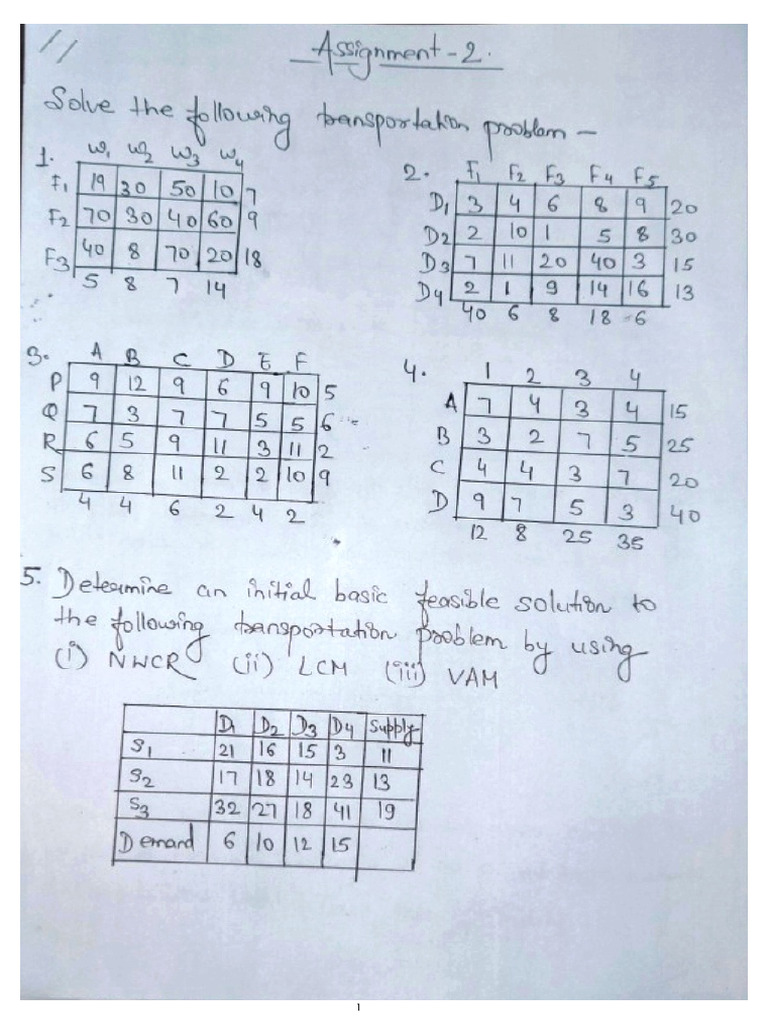 11
Assignment-2.
Solve the following transportation problem —
1. W1 W2 W3 W4
F1 19 30 50 10 7
F2 70 30 40 60 9
F3 40 8 70 20 18
5 8 7 14
2. F1 F2 F3 F4 F5
D1 3 4 6 8 9 20
D2 2 10 1 5 8 30
D3 7 11 20 40 3 15
D4 2 1 9 14 16 13
40 6 8 18 6
3. A B C D E F
P 9 12 9 6 9 10 5
Q 7 3 7 7 5 5 6
R 6 5 9 11 3 11 2
S 6 8 11 2 2 10 9
4 4 6 2 4 2
4. 1 2 3 4
A 7 4 3 4 15
B 3 2 7 5 25
C 4 4 3 7 20
D 9 7 5 3 40
12 8 25 35
5. Determine an initial basic feasible solution to
the following transportation problem by using
(i) NWCR (ii) LCM (iii) VAM
D1 D2 D3 D4 Supply
S1 21 16 15 3 11
S2 17 18 14 23 13
S3 32 27 18 41 19
Demand 6 10 12 15
1